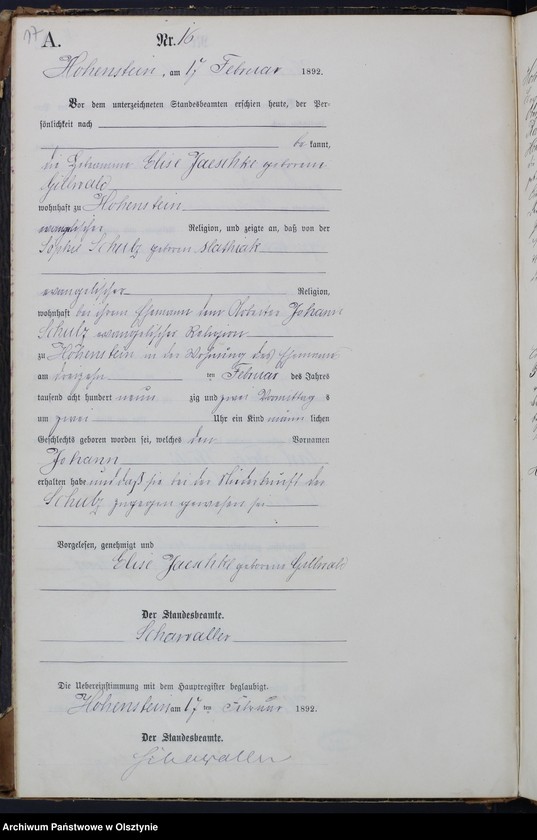 17
A.
Nr. 16
Hohenstein, am 17 Februar 1892.
Vor dem unterzeichneten Standesbeamten erschien heute, der Per-
sönlichkeit nach
be kannt,
die Elise Jaeschke geborene
Gillwald
wohnhaft zu Hohenstein
evanglischer Religion, und zeigte an, daß von der
Sophie Schulz geboren Mathiak
evangelischer Religion,
wohnhaft bei ihrem Ehemann dem Arbeiter Johann
Schulz evangelischer Religion
zu Hohenstein in der Wohnung des Ehemanns
am dreizehn ten Februar des Jahres
tausend acht hundert neun zig und zwei Vormittag s
um zwei Uhr ein Kind männ lichen
Geschlechts geboren worden sei, welches den Vornamen
Johann
erhalten habe und daß sie bei der Niederkunft der
Schulz zugegen gewesen sei
Vorgelesen, genehmigt und
Elise Jaeschke geborene Gillwald
Der Standesbeamte.
Schawaller
Die Uebereinstimmung mit dem Hauptregister beglaubigt.
Hohenstein am 17 ten Februar 1892.
Der Standesbeamte.
Schawaller
Archiwum Państwowe w Olsztynie